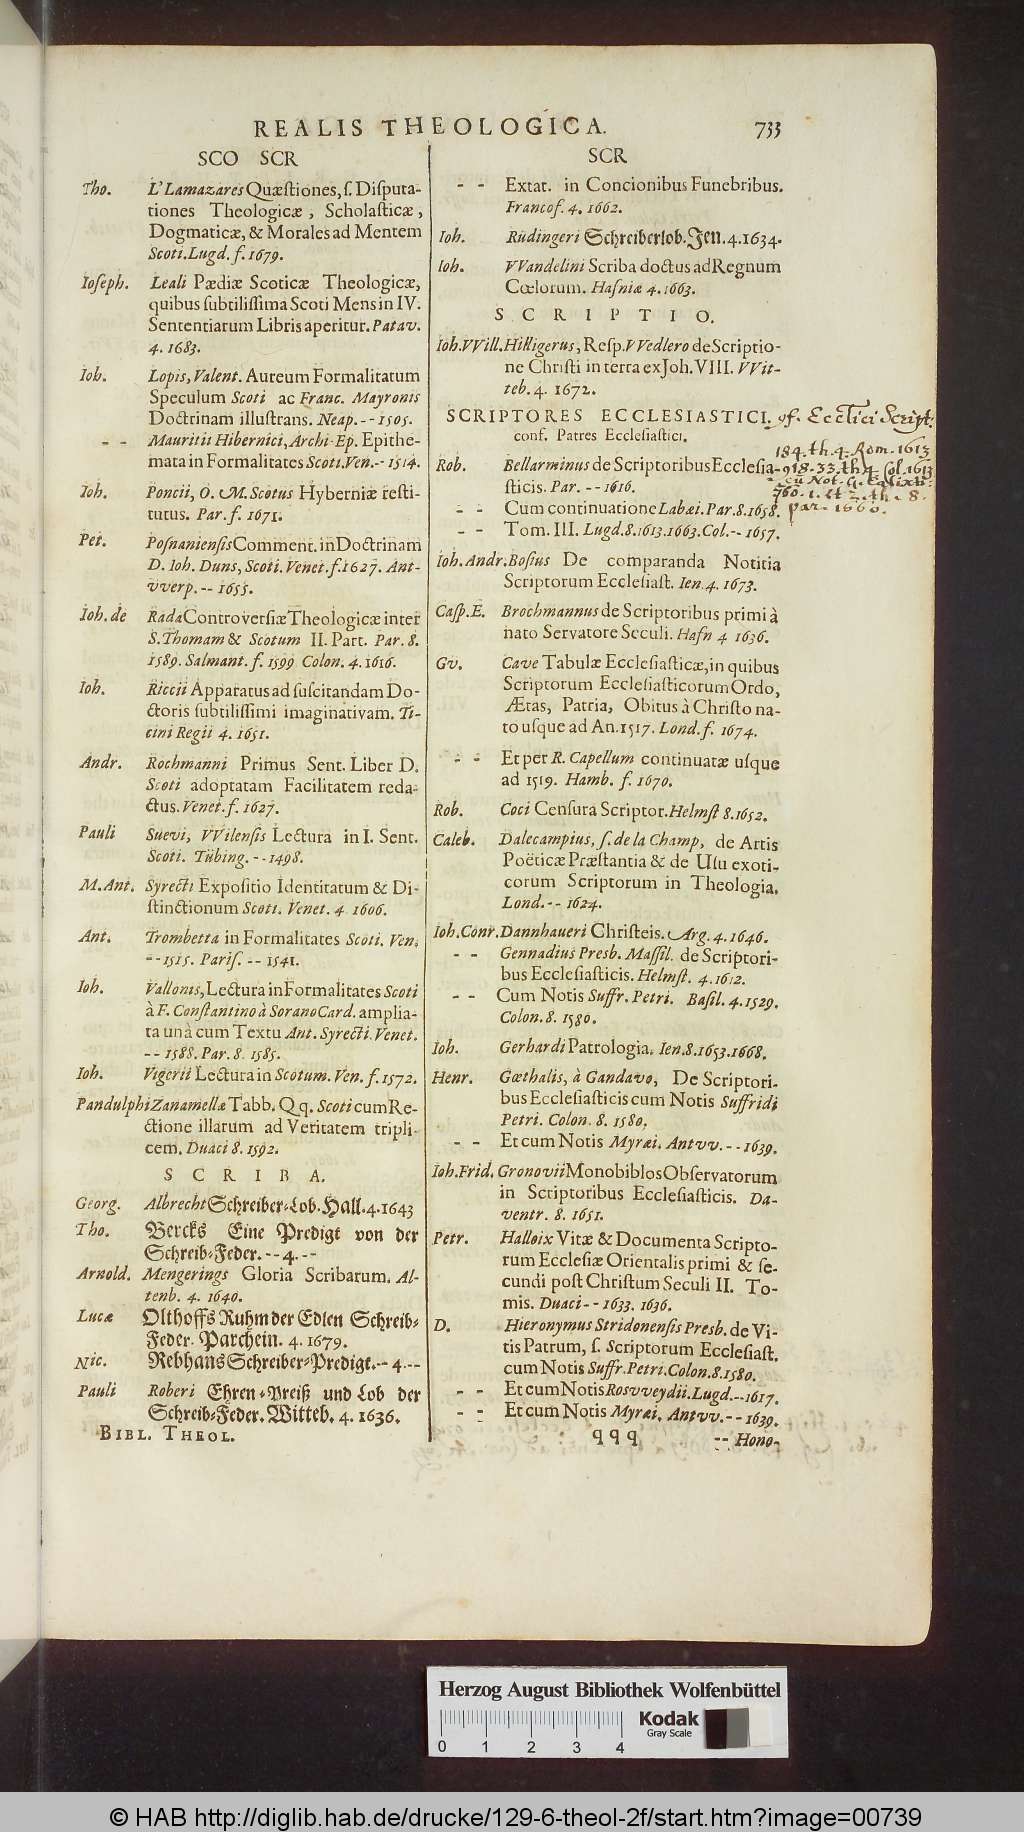 REALIS THEOLOGICA. 733
SCO SCR
Tho. L'Lamazares Quæstiones, ſ. Diſputa-
tiones Theologicæ, Scholaſticæ,
Dogmaticæ, & Morales ad Mentem
Scoti. Lugd. f. 1679.
Ioſeph. Leali Pædiæ Scoticæ Theologicæ,
quibus ſubtiliſſima Scoti Mens in IV.
Sententiarum Libris aperitur. Patav.
4. 1683.
Ioh. Lopis, Valent. Aureum Formalitatum
Speculum Scoti ac Franc. Mayronis
Doctrinam illuſtrans. Neap. -- 1505.
-- Mauritii Hibernici, Archi-Ep. Epithe-
mata in Formalitates Scoti. Ven. -- 1514.
Ioh. Poncii, O. M. Scotus Hyberniæ reſti-
tutus. Par. f. 1671.
Pet. Poſnanienſis Comment. in Doctrinam
D. Ioh. Duns, Scoti. Venet. f. 1627. Ant-
vverp. -- 1655.
Ioh. de Rada Controverſiæ Theologicæ inter
S. Thomam & Scotum II. Part. Par. 8.
1589. Salmant. f. 1599 Colon. 4. 1616.
Ioh. Riccii Apparatus ad ſuſcitandam Do-
ctoris ſubtiliſſimi imaginativam. Ti-
cini Regii 4. 1651.
Andr. Rochmanni Primus Sent. Liber D.
Scoti adoptatam Facilitatem reda-
ctus. Venet. f. 1627.
Pauli Suevi, VVilenſis Lectura in I. Sent.
Scoti. Tübing. -- 1498.
M. Ant. Syrecti Expoſitio Identitatum & Di-
ſtinctionum Scoti. Venet. 4 1606.
Ant. Trombetta in Formalitates Scoti. Ven.
-- 1515. Pariſ. -- 1541.
Ioh. Vallonis, Lectura in Formalitates Scoti
à F. Conſtantino à Sorano Card. amplia-
ta unà cum Textu Ant. Syrecti. Venet.
-- 1588. Par. 8. 1585.
Ioh. Vigerii Lectura in Scotum. Ven. f. 1572.
Pandulphi Zanamellæ Tabb. Qq. Scoti cum Re-
ctione illarum ad Veritatem tripli-
cem. Duaci 8. 1592.
SCRIBA.
Georg. Albrecht Schreiber-Lob. Hall. 4. 1643
Tho. Bercks Eine Predigt von der
Schreib-Feder. -- 4. --
Arnold. Mengerings Gloria Scribarum. Al-
tenb. 4. 1640.
Lucæ Olthoffs Ruhm der Edlen Schreib-
Feder. Parchein. 4. 1679.
Nic. Rebhans Schreiber-Predigt. -- 4. --
Pauli Roberi Ehren-Preiß und Lob der
Schreib-Feder. Witteb. 4. 1636.
BIBL. THEOL.
SCR
-- Extat. in Concionibus Funebribus.
Francof. 4. 1662.
Ioh. Rüdingeri Schreiberlob. Jen. 4. 1634.
Ioh. VVandelini Scriba doctus ad Regnum
Cœlorum. Hafniæ 4. 1663.
SCRIPTIO.
Ioh. VVill. Hilligerus, Reſp. VVedlero de Scriptio-
ne Chriſti in terra ex Joh. VIII. VVit-
teb. 4. 1672.
SCRIPTORES ECCLESIASTICI. cf. Ecclici Script.
conf. Patres Eccleſiaſtici.
184. th. 4. Rom. 1613
Rob. Bellarminus de Scriptoribus Eccleſia-
ſticis. Par. -- 1616.
918. 33. th. 4. Col. 1613
cū Not. G. Calixti
760. 1. et 2. th. 8.
par. 1660.
-- Cum continuatione Labæi. Par. 8. 1658.
-- Tom. III. Lugd. 8. 1613. 1663. Col. -- 1657.
Ioh. Andr. Boſius De comparanda Notitia
Scriptorum Eccleſiaſt. Ien. 4. 1673.
Caſp. E. Brochmannus de Scriptoribus primi à
nato Servatore Seculi. Hafn 4 1636.
Gv. Cave Tabulæ Eccleſiaſticæ, in quibus
Scriptorum Eccleſiaſticorum Ordo,
Ætas, Patria, Obitus à Chriſto na-
to uſque ad An. 1517. Lond. f. 1674.
-- Et per R. Capellum continuatæ uſque
ad 1519. Hamb. f. 1670.
Rob. Coci Cenſura Scriptor. Helmſt 8. 1652.
Caleb. Dalecampius, ſ. de la Champ, de Artis
Poëticæ Præſtantia & de Uſu exoti-
corum Scriptorum in Theologia.
Lond. -- 1624.
Ioh. Conr. Dannhaueri Chriſteis. Arg. 4. 1646.
-- Gennadius Presb. Maſſil. de Scriptori-
bus Eccleſiaſticis. Helmſt. 4. 1612.
-- Cum Notis Suffr. Petri. Baſil. 4. 1529.
Colon. 8. 1580.
Ioh. Gerhardi Patrologia. Ien. 8. 1653. 1668.
Henr. Gœthalis, à Gandavo, De Scriptori-
bus Eccleſiaſticis cum Notis Suffridi
Petri. Colon. 8. 1580.
-- Et cum Notis Myræi. Antvv. -- 1639.
Ioh. Frid. Gronovii Monobiblos Obſervatorum
in Scriptoribus Eccleſiaſticis. Da-
ventr. 8. 1651.
Petr. Halloix Vitæ & Documenta Scripto-
rum Eccleſiæ Orientalis primi & ſe-
cundi poſt Chriſtum Seculi II. To-
mis. Duaci -- 1633. 1636.
D. Hieronymus Stridonenſis Presb. de Vi-
tis Patrum, ſ. Scriptorum Eccleſiaſt.
cum Notis Suffr. Petri. Colon. 8. 1580.
-- Et cum Notis Rosvveydii. Lugd. -- 1617.
-- Et cum Notis Myræi. Antvv. -- 1639.
qqq -- Hono-
Herzog August Bibliothek Wolfenbüttel
0 1 2 3 4
Kodak
Gray Scale
© HAB http://diglib.hab.de/drucke/129-6-theol-2f/start.htm?image=00739